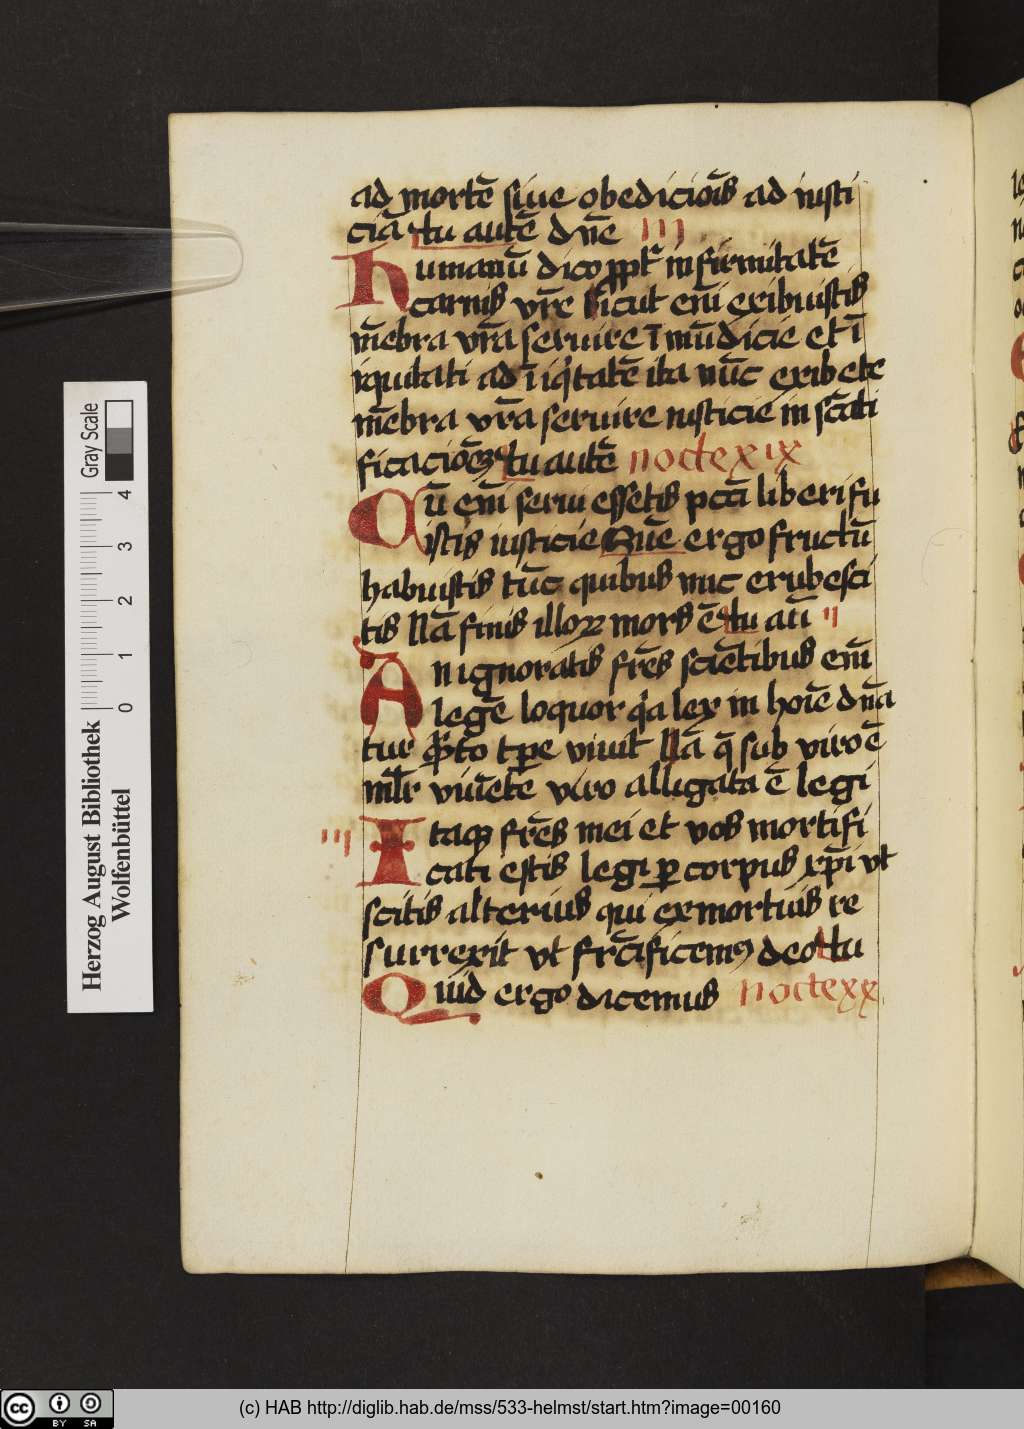 ad mortē siue obedicioīs ad iusti
ciā tu autē dn̄e III
Humanū dico ꝓpt̄ infirmitatē
carnis vr̄e sicut eni̅ exibuistis
mēbra vr̄a seruire īmūdicie et ī
iquitati ad īiq̇tatē ita nūc exibete
mēbra vr̄a seruire iusticie in sc̄ati
ficacioēꝫ tu autē nocte xix
Qū eni̅ serui essetis pcc̄i liberi fu
istis iusticie Quē ergo fructū
habuistis tūc quibus nūc erubesci
tis Nā finis illoꝝ mors ē tu aū II
An ignoratis fr̄es sciētibus eni̅
legē loquor q̇a lex in hoīe dn̄a
tur qͣ̄to tꝑe viuit Nā q̄ sub viro ē
ml̄r viuēte viro alligata ē legi
III Itaqꝫ fr̄es mei et vos mortifi
cati estis legi ꝑ corpus xp̄i vt
scitis alterius qui ex mortuis re
surrexit vt fruc̄ificemꝰ deo tu
Quid ergo dicemus nocte xx
Gray Scale
4
3
2
1
0
Herzog August Bibliothek
Wolfenbüttel
cc BY SA
(c) HAB http://diglib.hab.de/mss/533-helmst/start.htm?image=00160